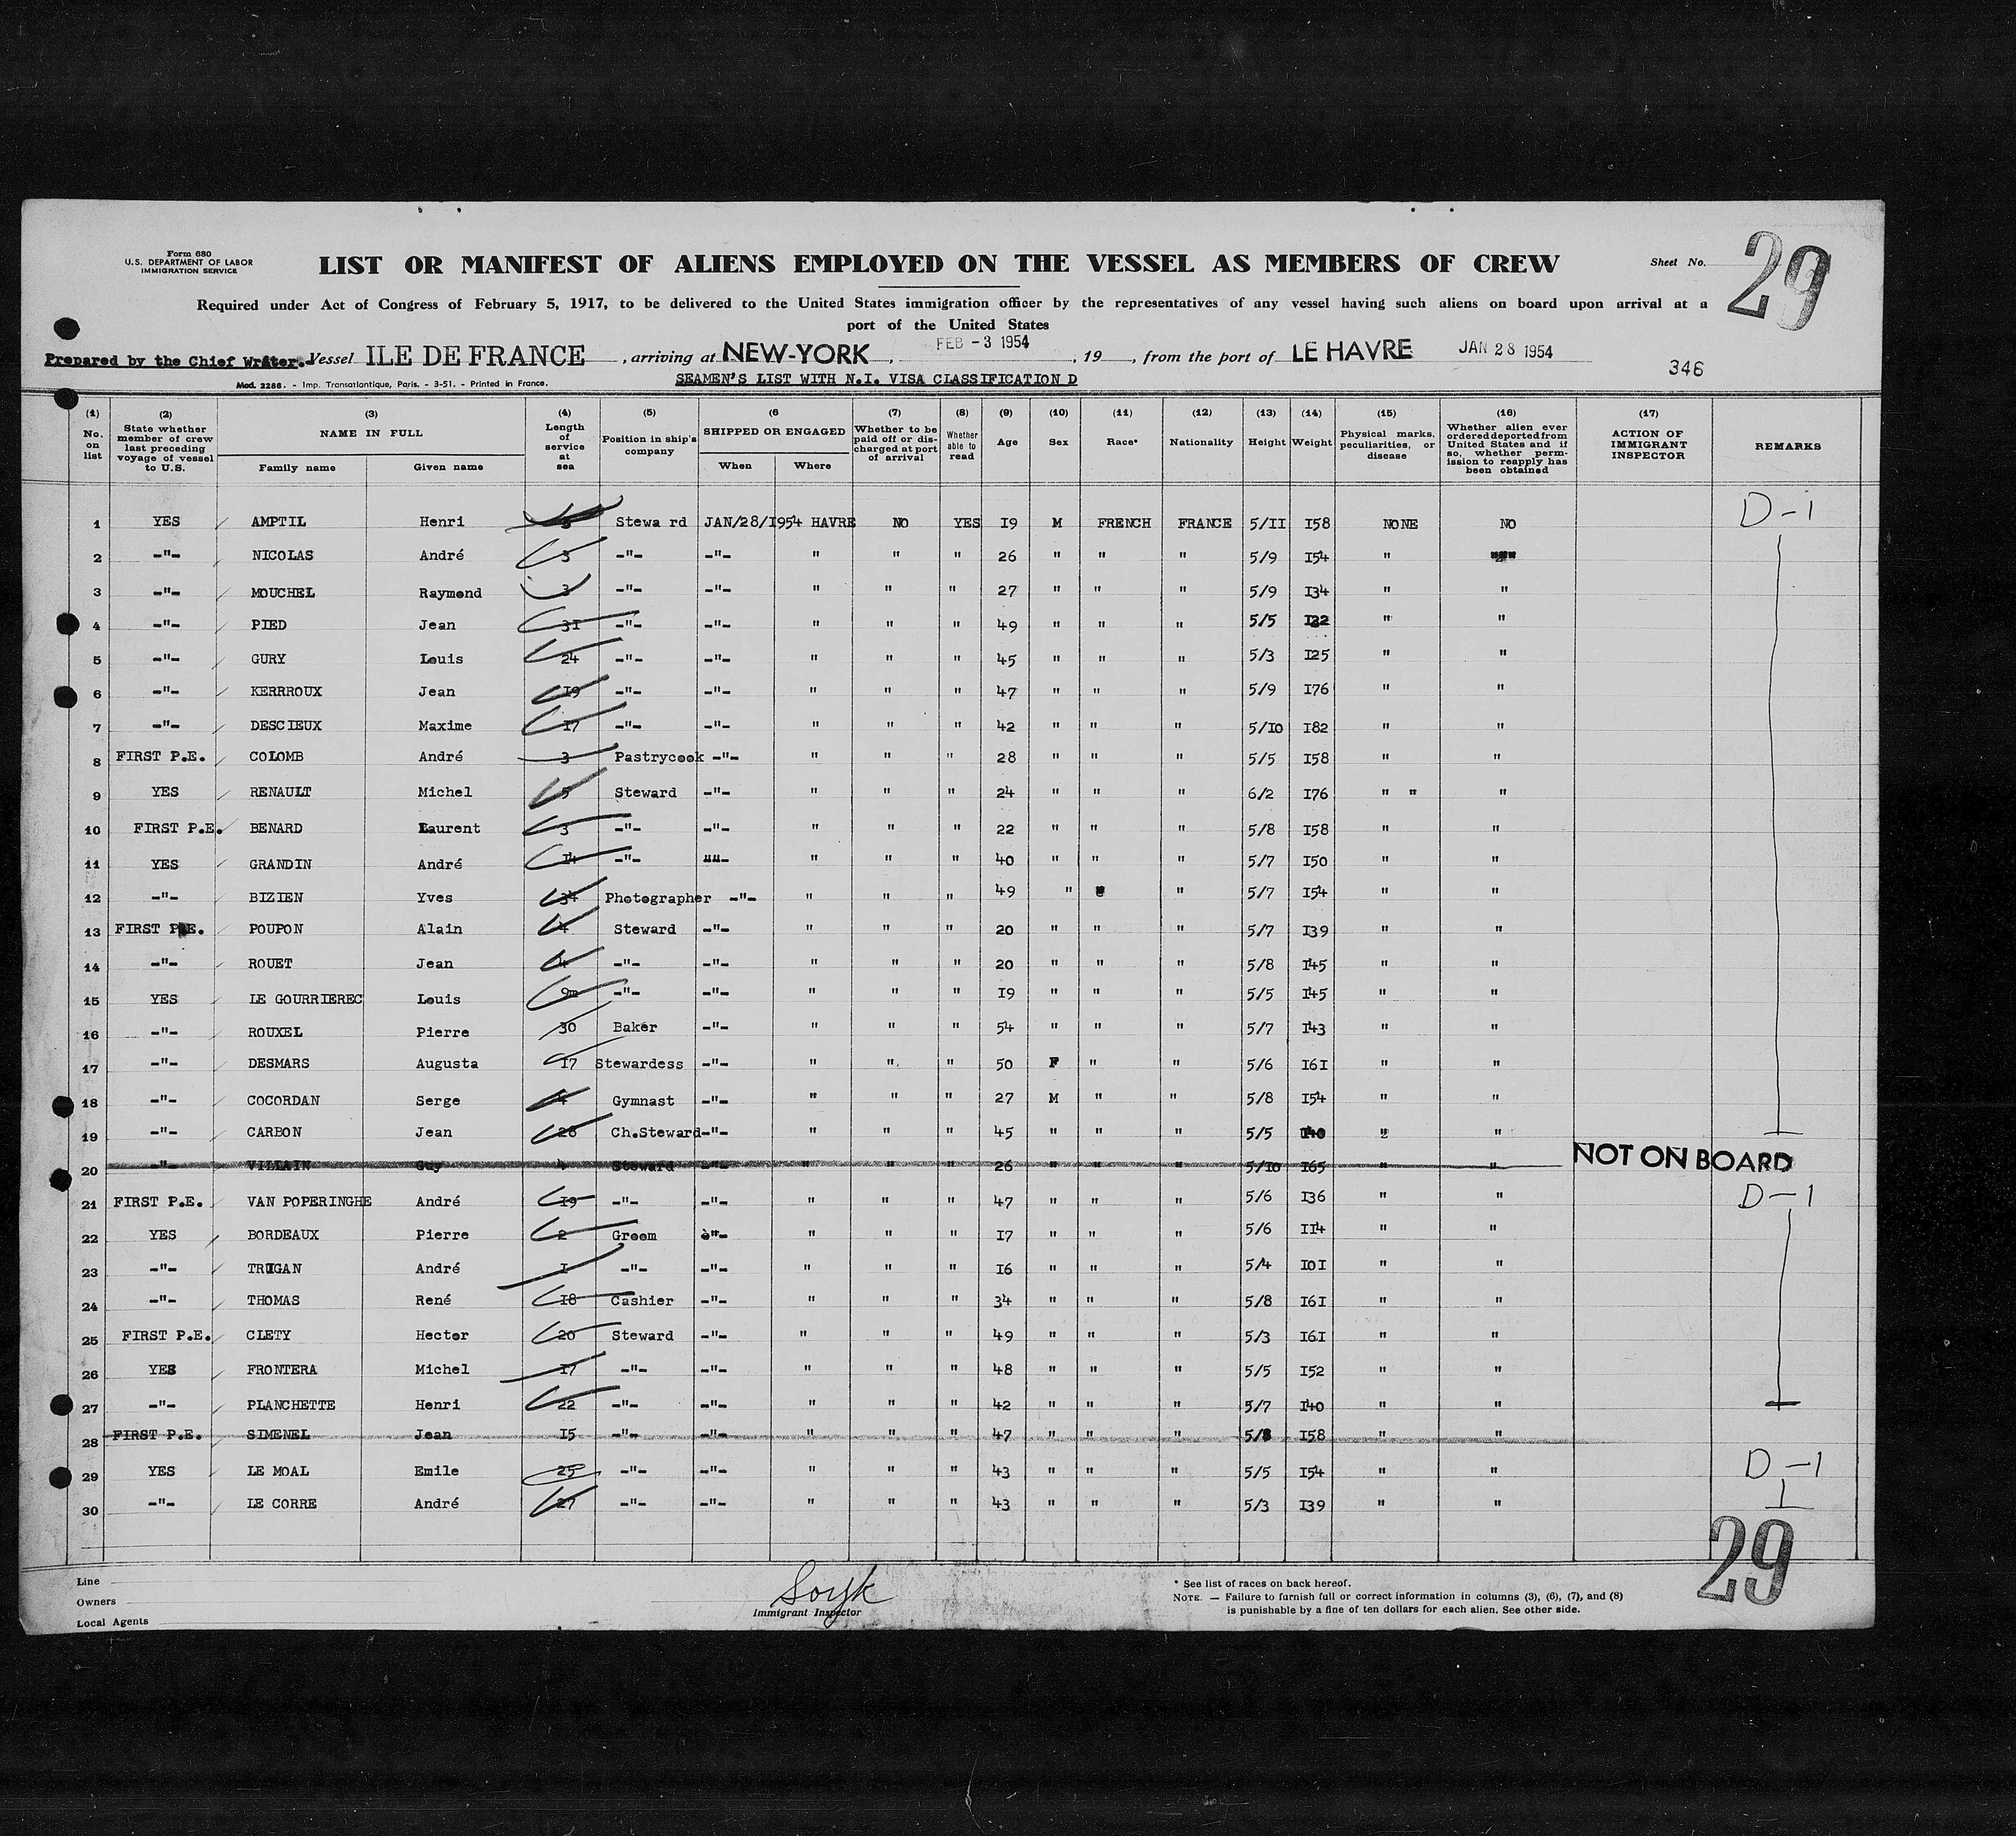 Form 680
U.S. DEPARTMENT OF LABOR
IMMIGRATION SERVICE
LIST OR MANIFEST OF ALIENS EMPLOYED ON THE VESSEL AS MEMBERS OF CREW
Sheet No. 29
Required under Act of Congress of February 5, 1917, to be delivered to the United States immigration officer by the representatives of any vessel having such aliens on board upon arrival at a
port of the United States
Prepared by the Chief Writer. Vessel ILE DE FRANCE, arriving at NEW-YORK, FEB -3 1954, 19, from the port of LE HAVRE JAN 28 1954
346
Mod. 2288. - Imp. Transatlantique, Paris. - 3-51. - Printed in France.
SEAMEN'S LIST WITH N.I. VISA CLASSIFICATION D
(1) No. on list
(2) State whether member of crew last preceding voyage of vessel to U.S.
(3) NAME IN FULL Family name Given name
(4) Length of service at sea
(5) Position in ship's company
(6 SHIPPED OR ENGAGED When Where
(7) Whether to be paid off or discharged at port of arrival
(8) Whether able to read
(9) Age
(10) Sex
(11) Race*
(12) Nationality
(13) Height
(14) Weight
(15) Physical marks, peculiarities, or disease
(16) Whether alien ever ordered deported from United States and if so, whether permission to reapply has been obtained
(17) ACTION OF IMMIGRANT INSPECTOR
REMARKS
1 YES AMPTIL Henri Stewa rd JAN/28/1954 HAVRE NO YES 19 M FRENCH FRANCE 5/11 158 NONE NO D-1
2 -"- NICOLAS André 3 -"- -"- " " " 26 " " " 5/9 154 "
3 -"- MOUCHEL Raymond 3 -"- -"- " " " 27 " " " 5/9 134 " "
4 -"- PIED Jean 31 -"- -"- " " " 49 " " " 5/5 132 " "
5 -"- GURY Louis 24 -"- -"- " " " 45 " " " 5/3 125 " "
6 -"- KERRROUX Jean 19 -"- -"- " " " 47 " " " 5/9 176 " "
7 -"- DESCIEUX Maxime 17 -"- -"- " " " 42 " " " 5/10 182 " "
8 FIRST P.E. COLOMB André 3 Pastrycook -"- " " " 28 " " " 5/5 158 " "
9 YES RENAULT Michel 5 Steward -"- " " " 24 " " " 6/2 176 " " "
10 FIRST P.E. BENARD Laurent 3 -"- -"- " " " 22 " " " 5/8 158 " "
11 YES GRANDIN André 14 -"- ""- " " " 40 " " " 5/7 150 " "
12 -"- BIZIEN Yves 34 Photographer -"- " " " 49 " " 5/7 154 " "
13 FIRST P.E. POUPON Alain 4 Steward -"- " " " 20 " " " 5/7 139 " "
14 -"- ROUET Jean 4 -"- -"- " " " 20 " " " 5/8 145 " "
15 YES LE GOURRIEREC Louis 9m -"- -"- " " " 19 " " " 5/5 145 " "
16 -"- ROUXEL Pierre 30 Baker -"- " " " 54 " " " 5/7 143 " "
17 -"- DESMARS Augusta 17 Stewardess -"- " " " 50 F " " 5/6 161 " "
18 -"- COCORDAN Serge 4 Gymnast -"- " " " 27 M " " 5/8 154 " "
19 -"- CARBON Jean 28 Ch.Steward -"- " " " 45 " " " 5/5 140 " "
20 -"- VILLAIN Guy 4 Steward -"- " " " 26 " " " 5/10 165 " " NOT ON BOARD
21 FIRST P.E. VAN POPERINGHE André 19 -"- -"- " " " 47 " " " 5/6 136 " " D-1
22 YES BORDEAUX Pierre 2 Groom è"- " " " 17 " " " 5/6 114 " "
23 -"- TRIGAN André 1 -"- -"- " " " 16 " " " 5/4 101 " "
24 -"- THOMAS René 18 Cashier -"- " " " 34 " " " 5/8 161 " "
25 FIRST P.E. CLETY Hector 20 Steward -"- " " " 49 " " " 5/3 161 " "
26 YES FRONTERA Michel 17 -"- -"- " " " 48 " " " 5/5 152 " "
27 -"- PLANCHETTE Henri 22 -"- -"- " " " 42 " " " 5/7 140 " "
28 FIRST P.E. SIMENEL Jean 15 -"- -"- " " " 47 " " " 5/8 158 " "
29 YES LE MOAL Emile 25 -"- -"- " " " 43 " " " 5/5 154 " " D-1
30 -"- LE CORRE André 27 -"- -"- " " " 43 " " " 5/3 139 " "
29
Line
Owners
Local Agents
Immigrant Inspector
* See list of races on back hereof.
NOTE. — Failure to furnish full or correct information in columns (3), (6), (7), and (8)
is punishable by a fine of ten dollars for each alien. See other side.